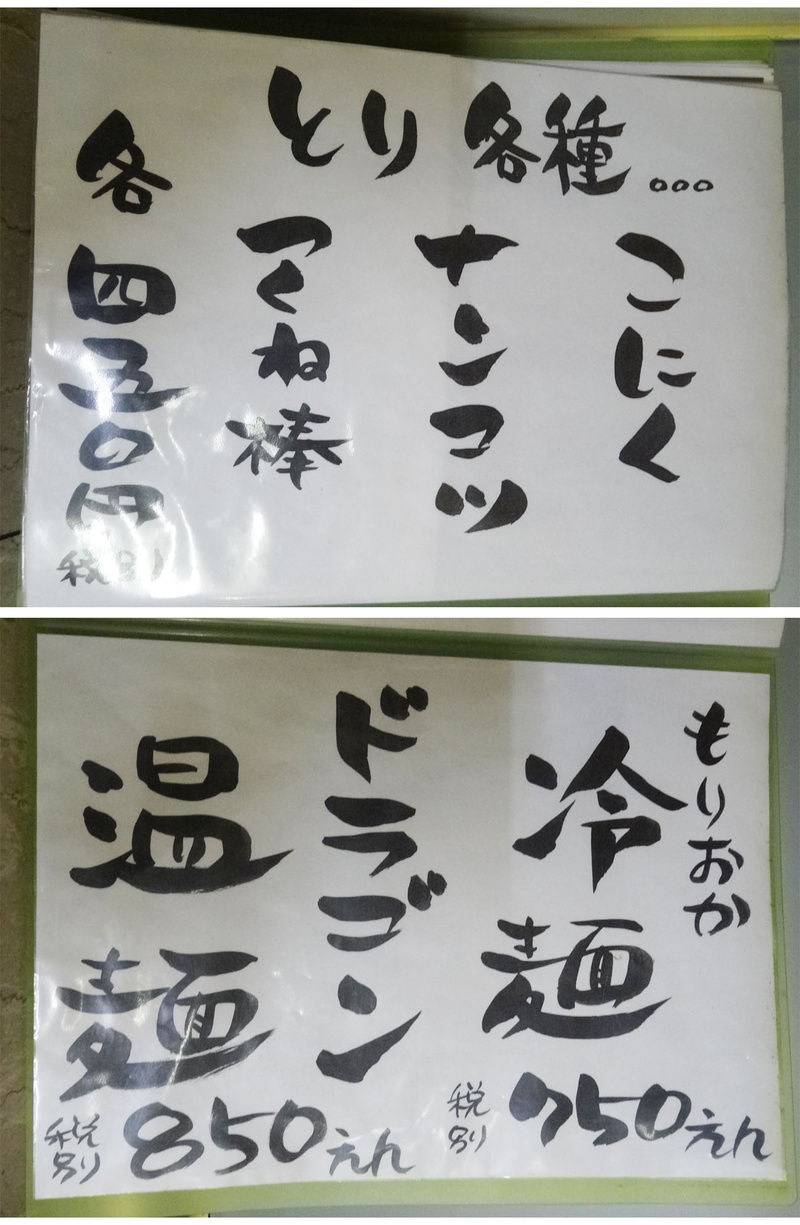 とり各種。。。
こにく
ナンコツ
つくね棒
各四五〇円
税別
もりおか
冷麺
750えん
税別
ドラゴン
温麺
850えん
税別